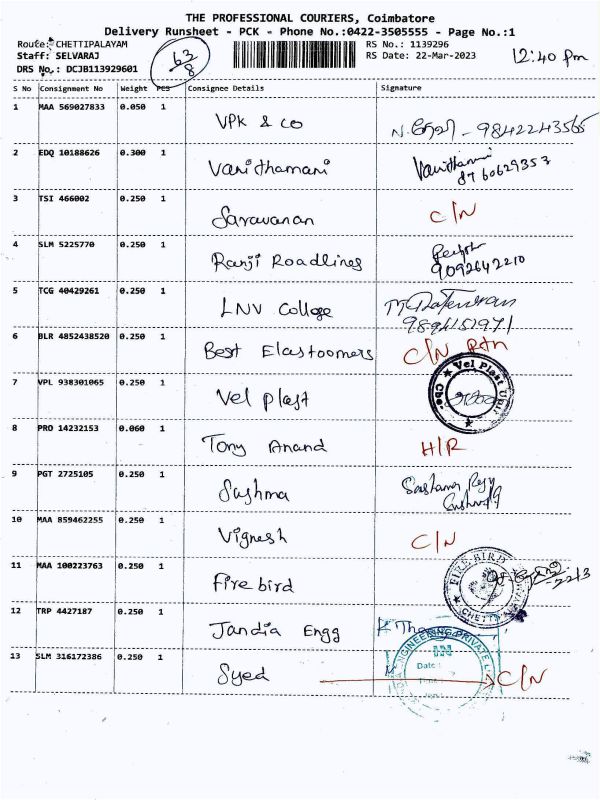 THE PROFESSIONAL COURIERS, Coimbatore
Delivery Runsheet - PCK - Phone No.:0422-3505555 - Page No.:1
Route: CHETTIPALAYAM
Staff: SELVARAJ
DRS No.: DCJB113929601
63/8
RS No.: 1139296
RS Date: 22-Mar-2023
12:40 Pm
S No Consignment No Weight PCS Consignee Details Signature
1 MAA 569027833 0.050 1 VPK & co 9842243565
2 EDQ 10188626 0.300 1 Vanithamani Vanithamani
8760629353
3 TSI 466002 0.250 1 Saravanan C/N
4 SLM 5225770 0.250 1 Ranji Roadlines
9092642210
5 TCG 40429261 0.250 1 LNV College
9894151971
6 BLR 4852438520 0.250 1 Best Elastoomers C/N Rtn
7 VPL 938301065 0.250 1 Vel plast Vel Plast Cbe
8 PRO 14232153 0.060 1 Tony Anand H/R
9 PGT 2725105 0.250 1 Sushma
10 MAA 859462255 0.250 1 Vignesh C/N
11 MAA 100223763 0.250 1 Fire bird FIRE BIRD
12 TRP 4427187 0.250 1 Jandia Engg ENGINEERING PRIVATE
Date:
13 SLM 316172386 0.250 1 Syed C/N